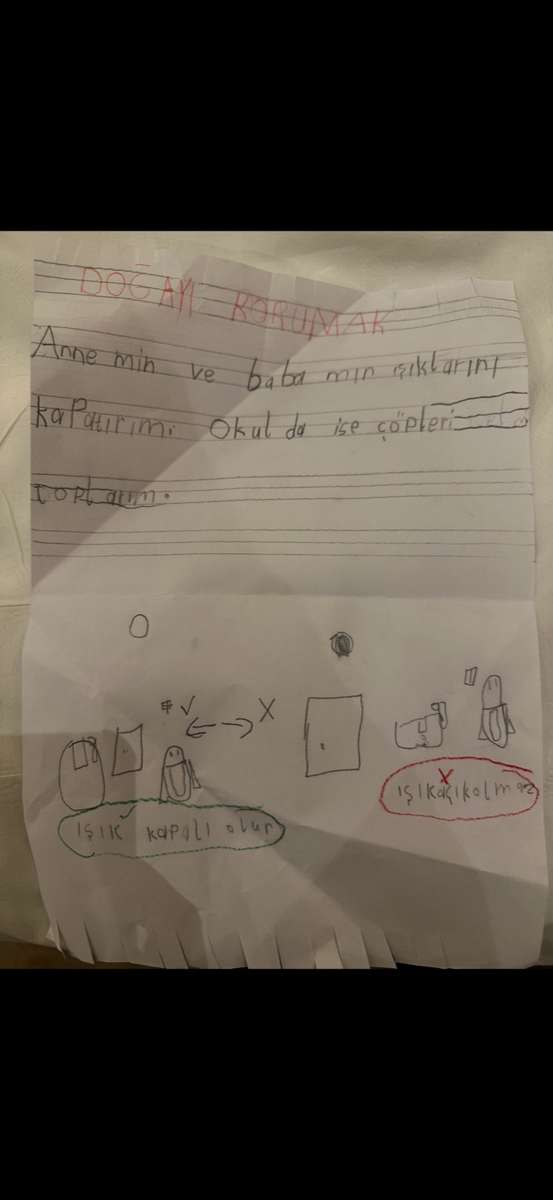 DOĞAYI KORUMAK
Annemin ve babamın ışıklarını
kapatırım. Okulda ise çöpleri
toplarım.
X
IŞIK kapalı olur
X
ışık açık olmaz